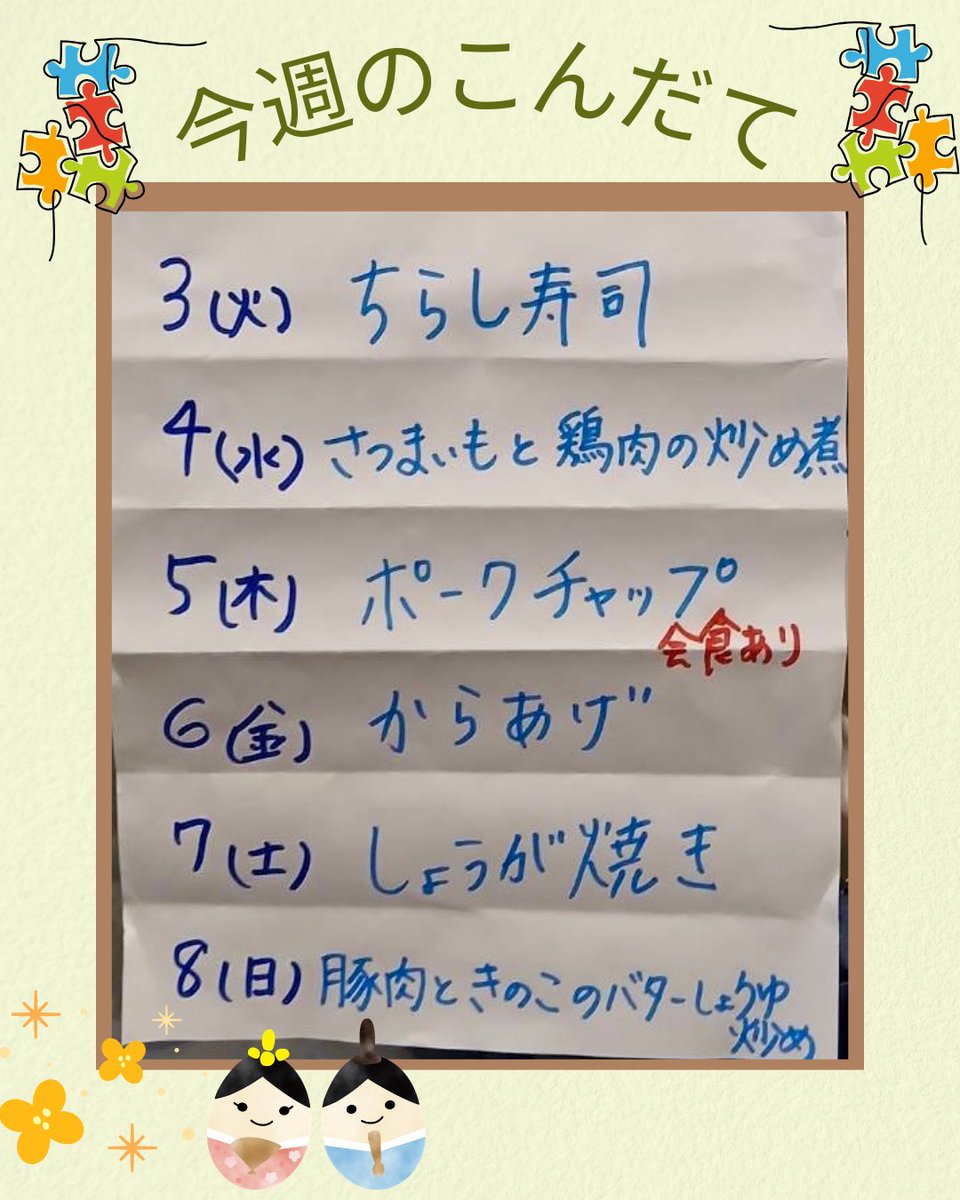 今週のこんだて
3(火) ちらし寿司
4(水) さつまいもと鶏肉の炒め煮
5(木) ポークチャップ
会食あり
6(金) からあげ
7(土) しょうが焼き
8(日) 豚肉ときのこのバターしょうゆ
炒め